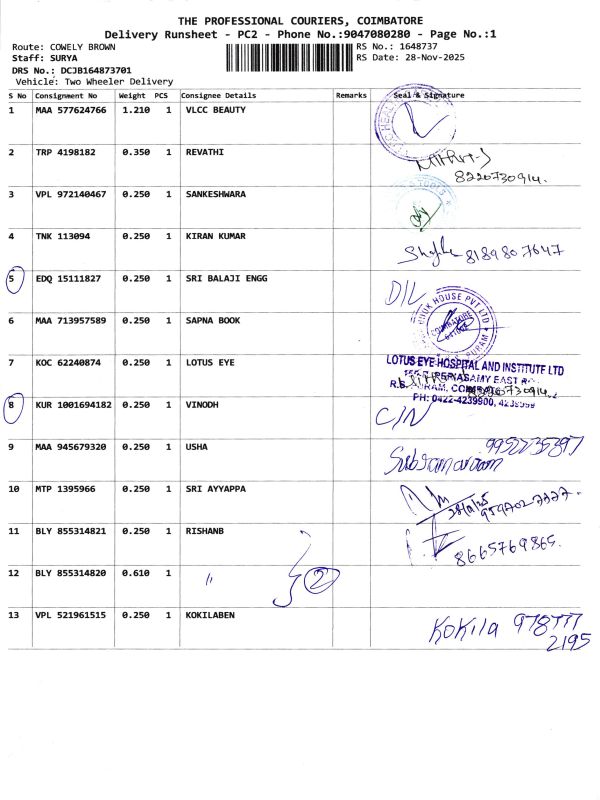 THE PROFESSIONAL COURIERS, COIMBATORE
Delivery Runsheet - PC2 - Phone No.:9047080280 - Page No.:1
Route: COWELY BROWN
RS No.: 1648737
Staff: SURYA
RS Date: 28-Nov-2025
DRS No.: DCJB164873701
Vehicle: Two Wheeler Delivery
S No Consignment No Weight PCS Consignee Details Remarks Seal & Signature
1 MAA 577624766 1.210 1 VLCC BEAUTY
2 TRP 4198182 0.350 1 REVATHI
8220730914.
3 VPL 972140467 0.250 1 SANKESHWARA
4 TNK 113094 0.250 1 KIRAN KUMAR
8189807647
5 EDQ 15111827 0.250 1 SRI BALAJI ENGG D/L
6 MAA 713957589 0.250 1 SAPNA BOOK
BOOK HOUSE PVT LTD
COIMBATORE
7 KOC 62240874 0.250 1 LOTUS EYE
LOTUS EYE HOSPITAL AND INSTITUTE LTD
PH: 0422-4239900, 4239999
8 KUR 1001694182 0.250 1 VINODH C/N
9 MAA 945679320 0.250 1 USHA
9952235397
Subramaniam
10 MTP 1395966 0.250 1 SRI AYYAPPA
28/11/25
11 BLY 855314821 0.250 1 RISHANB
8665769865.
12 BLY 855314820 0.610 1 " 2
13 VPL 521961515 0.250 1 KOKILABEN
Kokila 978777
2195